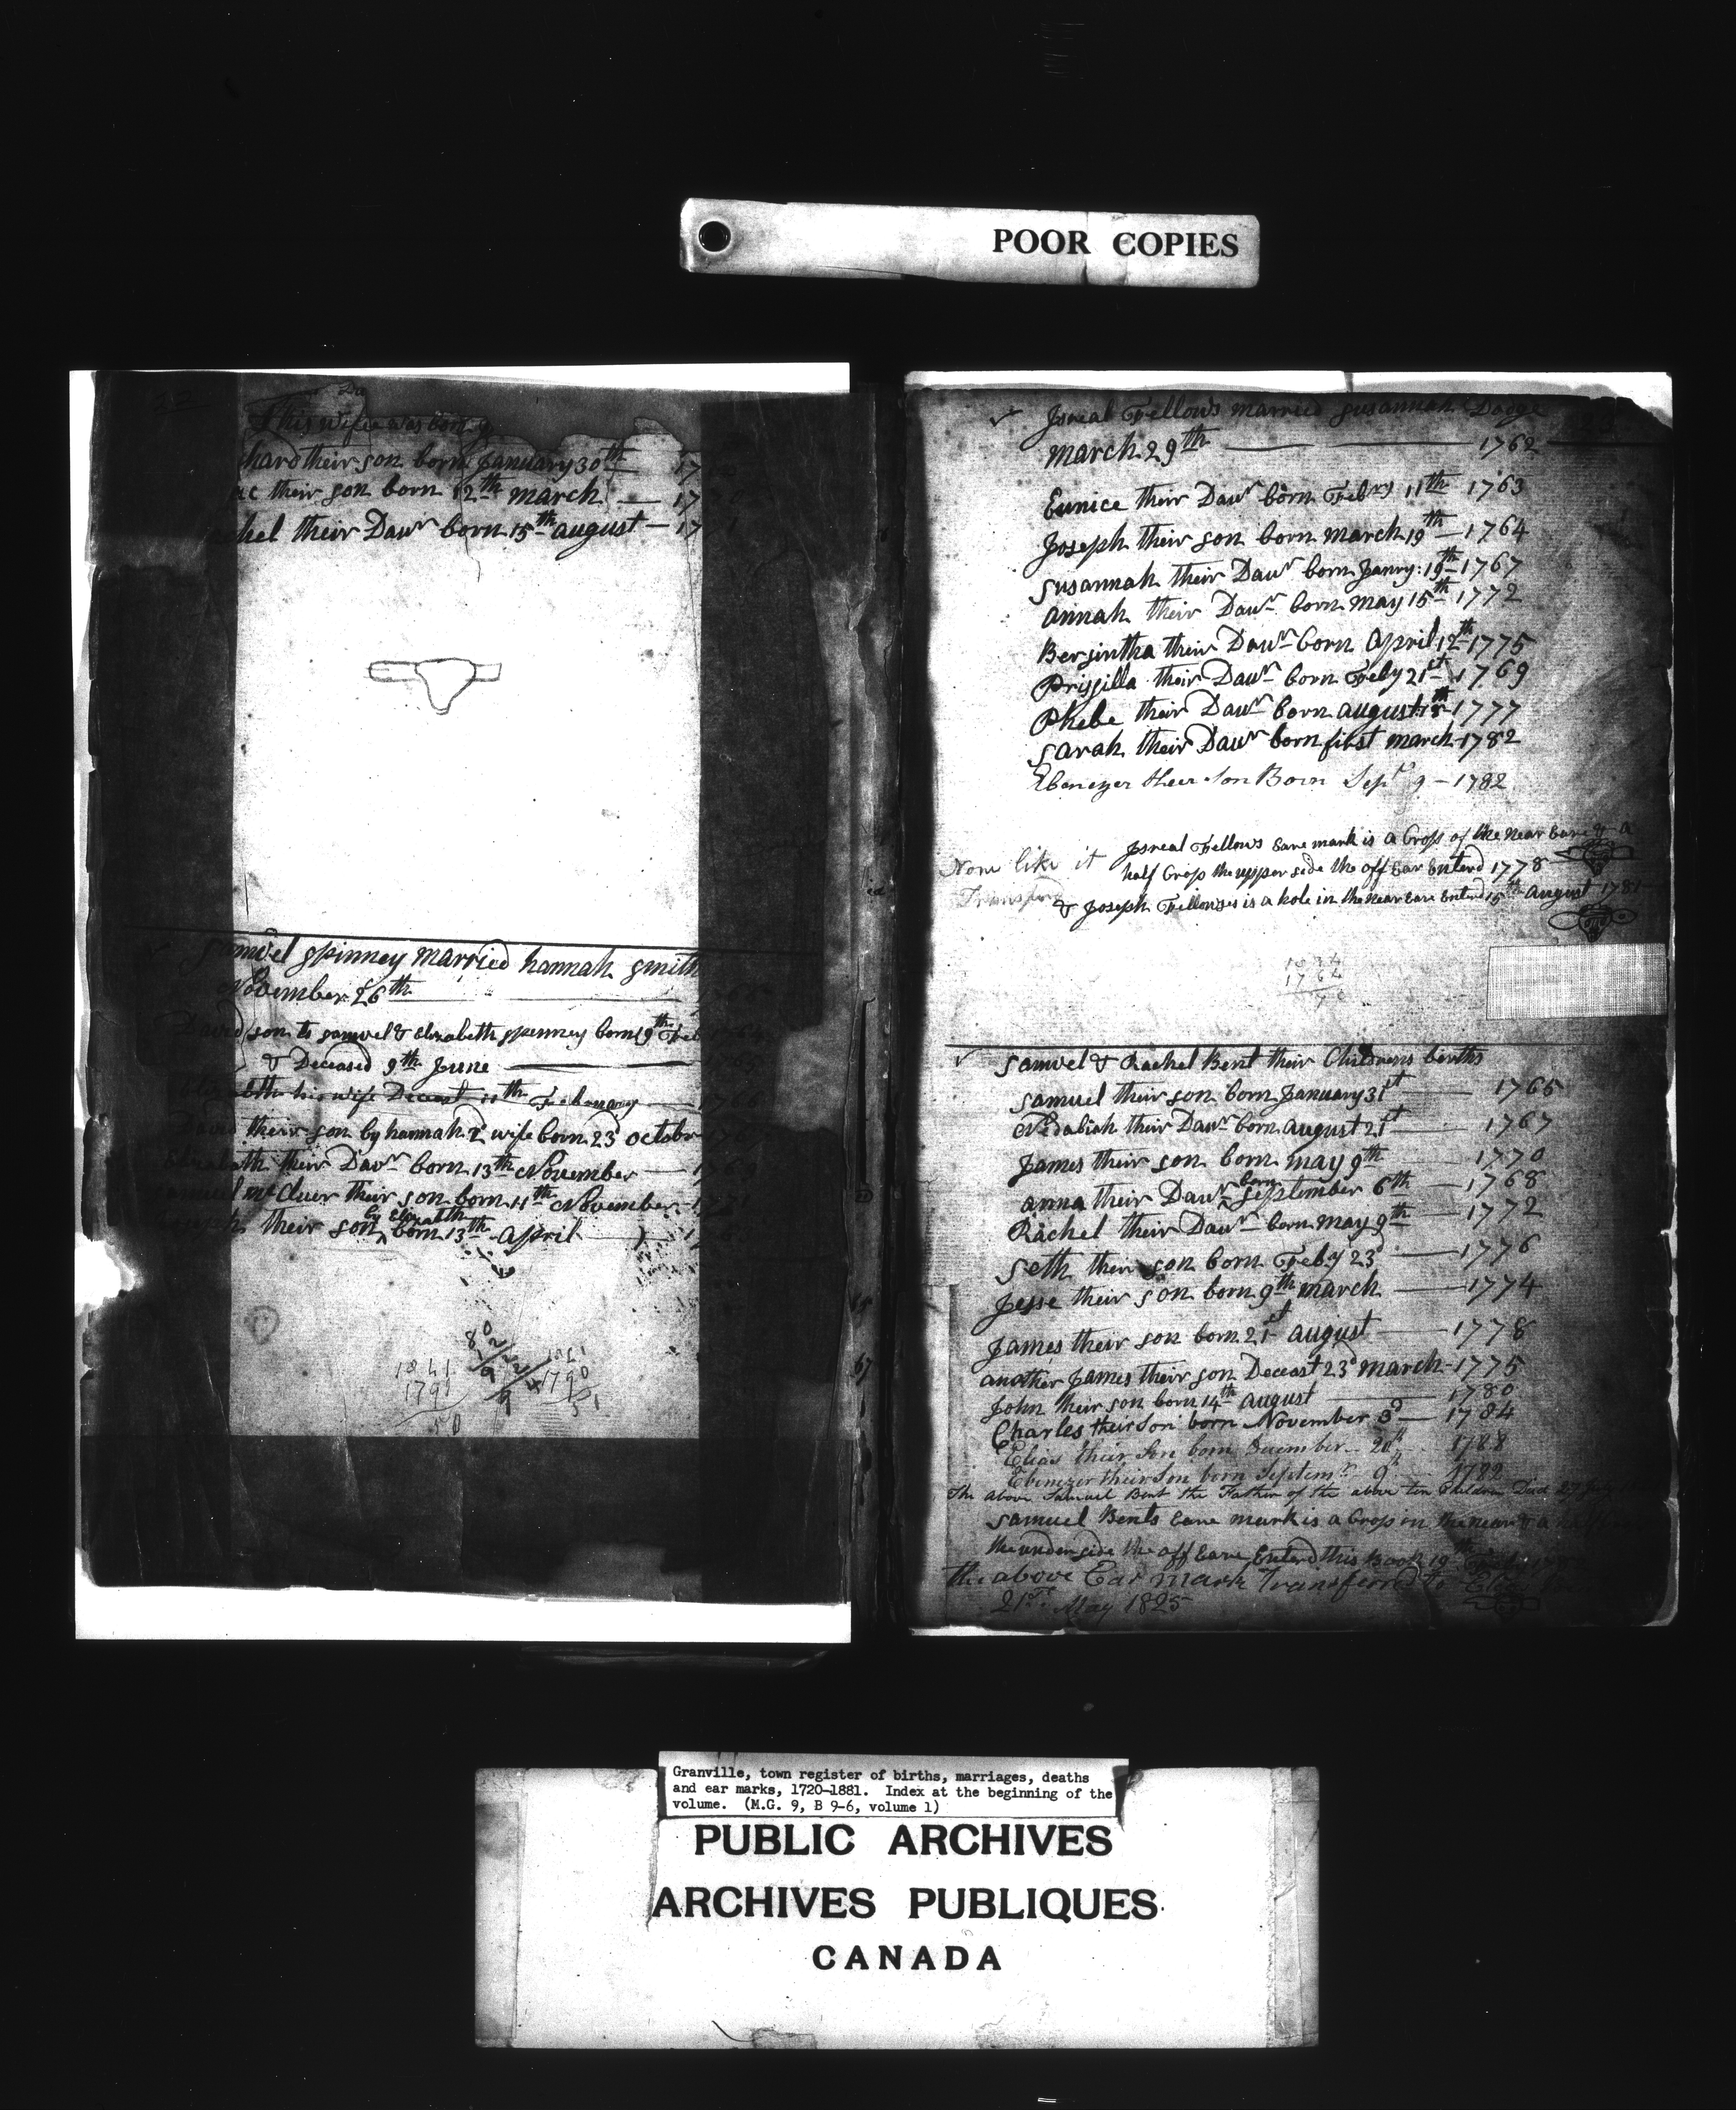 POOR COPIES
his wife was born
hard their son born January 30th 17
ac their son born 12th march 17
chel their Dawr born 15th august 17 1
Samuel Spinney married hannah Smith
November 26th
David son to samuel & Elizabeth spinney born 19th Feb
& Deceased 9th June
Elizabeth his wife Deceast 11th February 1766
David their son by hannah 2d wife born 23d octobr
Elizabeth their Dawr born 13th November
Samuel mcCluer their son born 11th November
Joseph their son by Elizabeth born 13th April
1841
1791
50
1841
1790
51
Isreal Fellows married Susannah Dodge
march 29th 1762
Eunice their Dawr born Febry 11th 1763
Joseph their son born march 19th 1764
Susannah their Dawr born Janry: 19th 1767
annah their Dawr born may 15th 1772
Bersintha their Dawr born April 12th 1775
Prissilla their Dawr born Feby 21st 1769
Phebe their Dawr born august 18th 1777
Sarah their Dawr born first march 1782
Ebenezer their Son Born Sepr 9 - 1782
Isreal Fellows Eare mark is a Crop of the near Eare & a
half Crop the upper side the off Ear Enterd 1778
None like it
Transferd
& Joseph Fellowses is a hole in the near Eare Enterd 15th August 1781
1834
1764
70
Samuel & Rachel Bent their Childrens births
Samuel their son born January 31st 1765
Nedabiah their Dawr born august 21st 1767
James their son born may 9th 1770
anna their Dawr born September 6th 1768
Rachel their Dawr born may 9th 1772
Seth their son born Feby 23d 1776
Jesse their son born 9th march 1774
James their son born 21st august 1778
another James their son Deceast 23d march 1775
John their son born 14th august 1780
Charles their Son born November 3d 1784
Elias their Son born December 20th 1788
Ebenezer their Son born Septemr 9th 1782
The above Samuel Bent the Father of the above ten Children Died 27
Samuel Bents Eare mark is a Crop in the near & a half
the under side the off Eare Enterd this Book 19th
the above Ear Mark transferred to Elias
21st May 1825
Granville, town register of births, marriages, deaths
and ear marks, 1720-1881. Index at the beginning of the
volume. (M.G. 9, B 9-6, volume 1)
PUBLIC ARCHIVES
ARCHIVES PUBLIQUES
CANADA